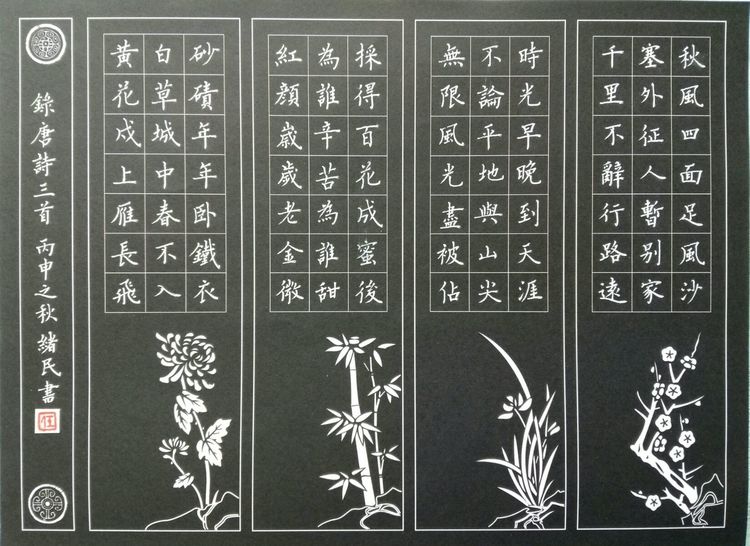 秋風四面足風沙
塞外征人暫别家
千里不辭行路遠
時光早晚到天涯
不論平地與山尖
無限風光盡被佔
採得百花成蜜後
為誰辛苦為誰甜
紅顔歲歲老金微
砂磧年年卧鐵衣
白草城中春不入
黃花戍上雁長飛
錄唐詩三首 丙申之秋 緒民書